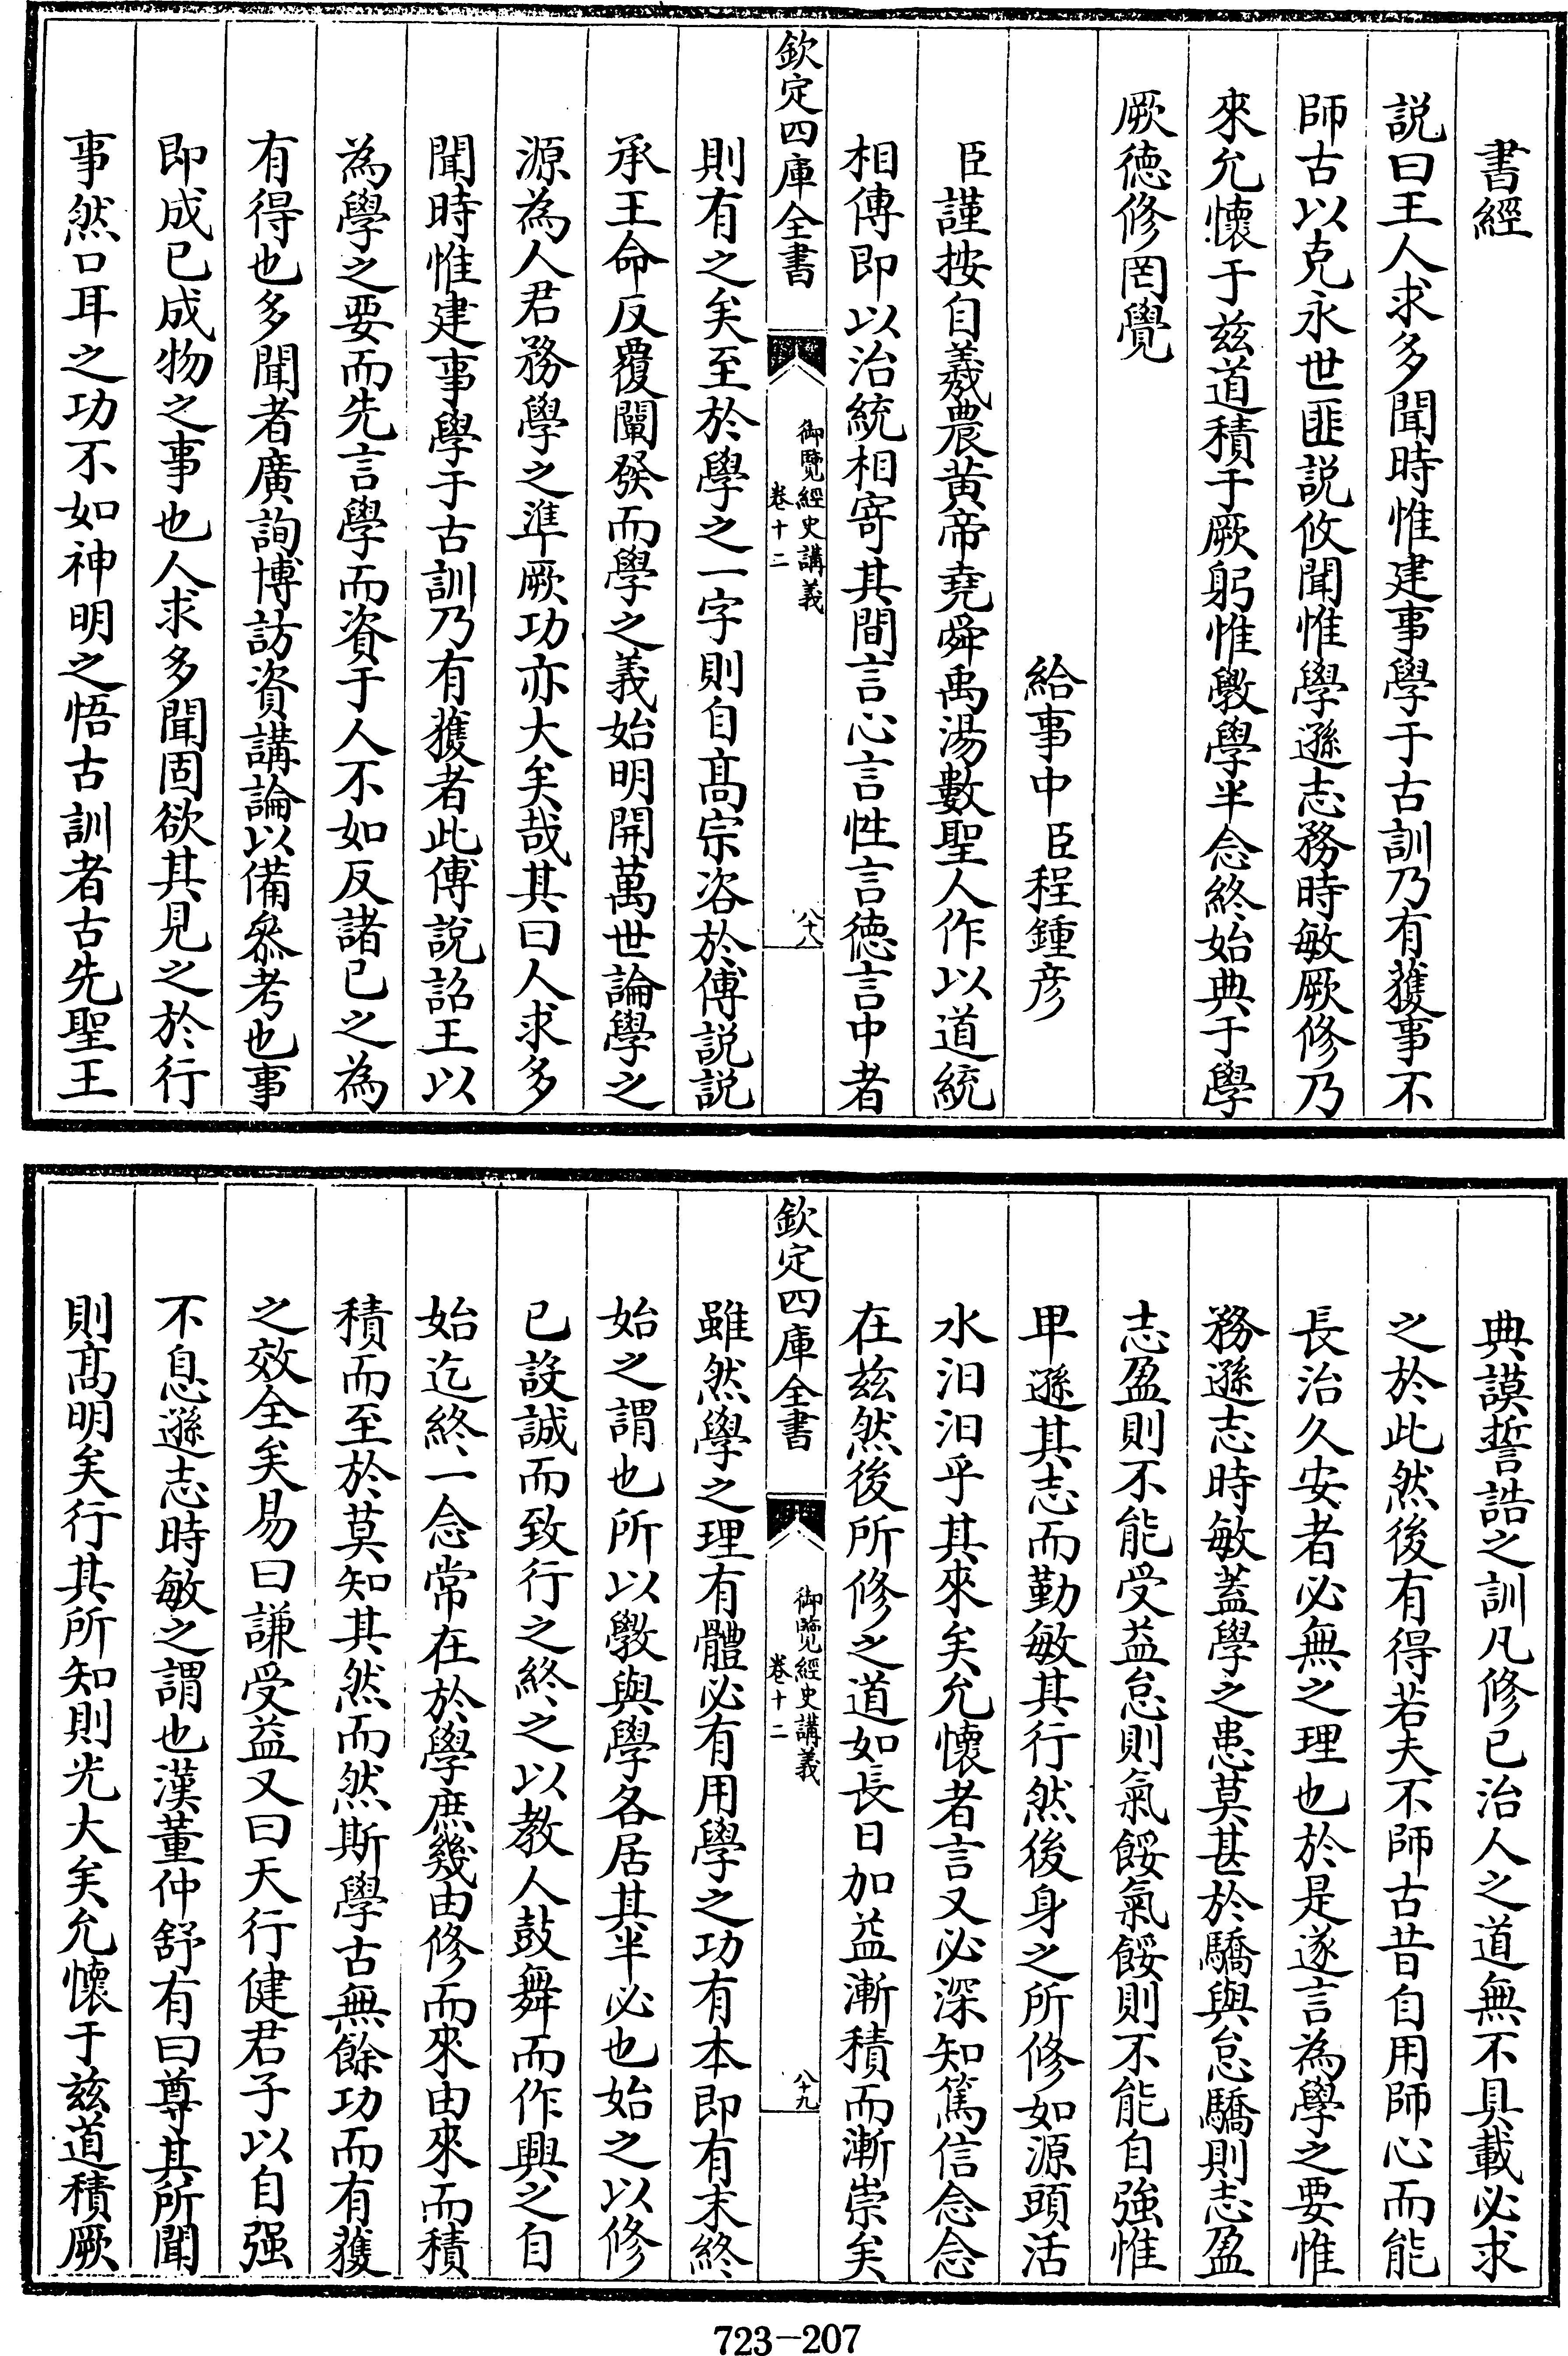 書經
説曰王人求多聞時惟建事學于古訓乃有獲事不
師古以克永世匪説攸聞惟學遜志務時敏厥修乃
來允懷于兹道積于厥躬惟斆學半念終始典于學
厥德修罔覺
給事中臣程鍾彦
臣謹按自羲農黄帝堯舜禹湯數聖人作以道統
相傳即以治統相寄其間言心言性言德言中者
欽定四庫全書
御覽經史講義
卷十二
八十八
則有之矣至於學之一字則自髙宗咨於傅説説
承王命反覆闡發而學之義始明開萬世論學之
源為人君務學之準厥功亦大矣哉其曰人求多
聞時惟建事學于古訓乃有獲者此傅説詔王以
為學之要而先言學而資于人不如反諸已之為
有得也多聞者廣詢博訪資講論以備參考也事
即成已成物之事也人求多聞固欲其見之於行
事然口耳之功不如神明之悟古訓者古先聖王
典謨誓誥之訓凡修已治人之道無不具載必求
之於此然後有得若夫不師古昔自用師心而能
長治久安者必無之理也於是遂言為學之要惟
務遜志時敏蓋學之患莫甚於驕與怠驕則志盈
志盈則不能受益怠則氣餒氣餒則不能自強惟
卑遜其志而勤敏其行然後身之所修如源頭活
水汩汩乎其來矣允懷者言又必深知篤信念念
在兹然後所修之道如長日加益漸積而漸崇矣
欽定四庫全書
御覽經史講義
卷十二
八十九
雖然學之理有體必有用學之功有本即有末終
始之謂也所以斆與學各居其半必也始之以修
已設誠而致行之終之以教人鼓舞而作興之自
始迄終一念常在於學庶幾由修而來由來而積
積而至於莫知其然而然斯學古無餘功而有獲
之效全矣易曰謙受益又曰天行健君子以自强
不息遜志時敏之謂也漢董仲舒有曰尊其所聞
則髙明矣行其所知則光大矣允懷于兹道積厥
723-207